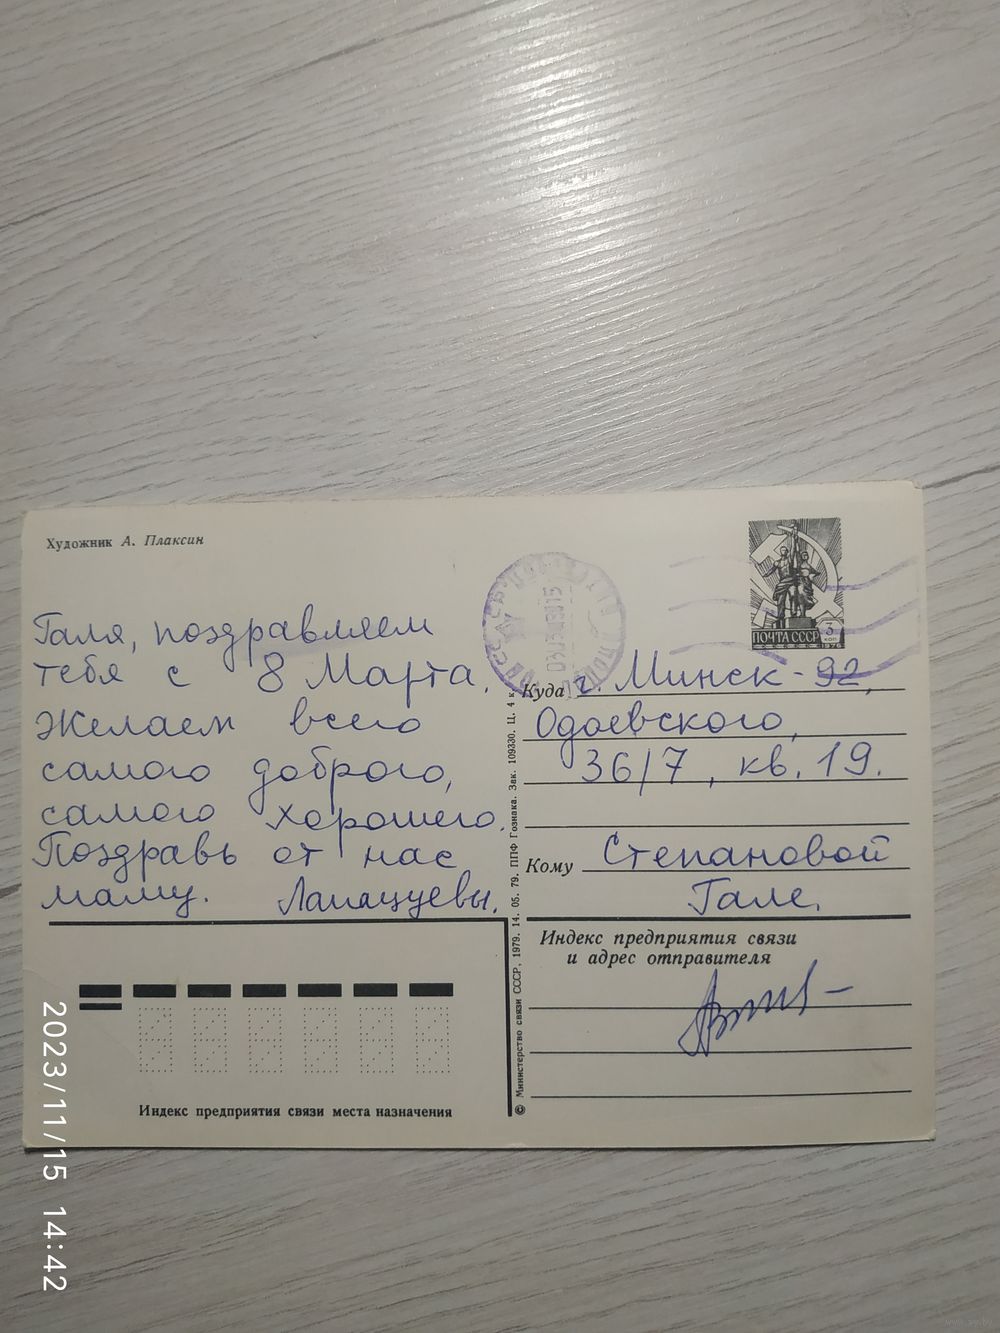 Художник А. Плаксин
Галя, поздравляем
тебя с 8 Марта.
Желаем всего
самого доброго,
самого хорошего.
Поздравь от нас
маму. Лапацуевы.
ПОЧТА СССР 3 КОП
1976
Куда г. Минск-92,
Одоевского,
36/7, кв. 19.
Кому Степановой
Гале.
Индекс предприятия связи
и адрес отправителя
Индекс предприятия связи места назначения
© Министерство связи СССР, 1979. 14. 05. 79. ППФ Гознака. Зак. 109330. Ц. 4 к.
2023/11/15 14:42